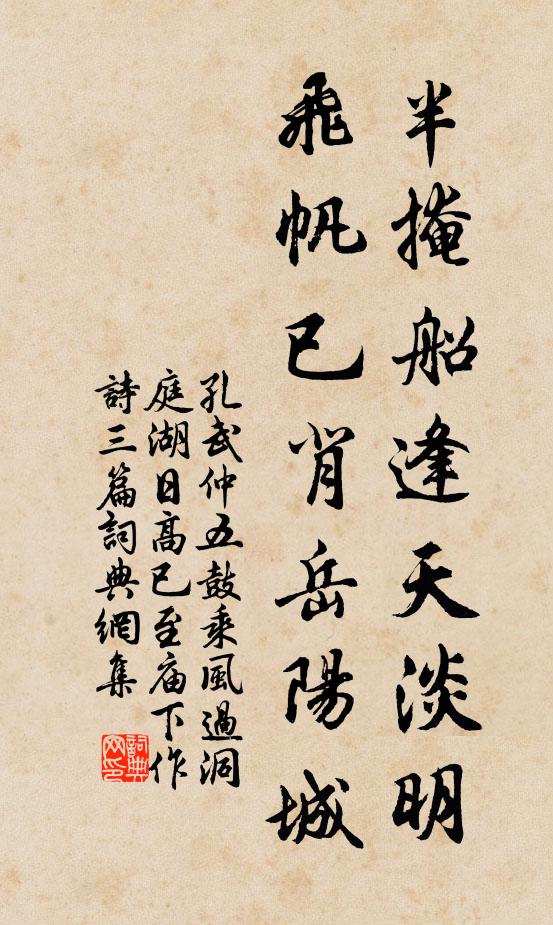 半掩船逢天淡明
飛帆已背岳陽城
孔武仲五鼓乘風過洞
庭湖日高已至庙下作
詩三篇詞典網集
詞典网印